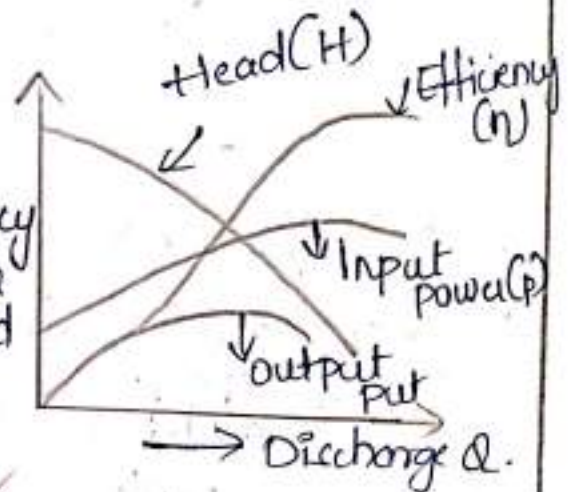 Head(H)
Efficieny
(η)
cy
d
Input
power(p)
output
put
Discharge Q.